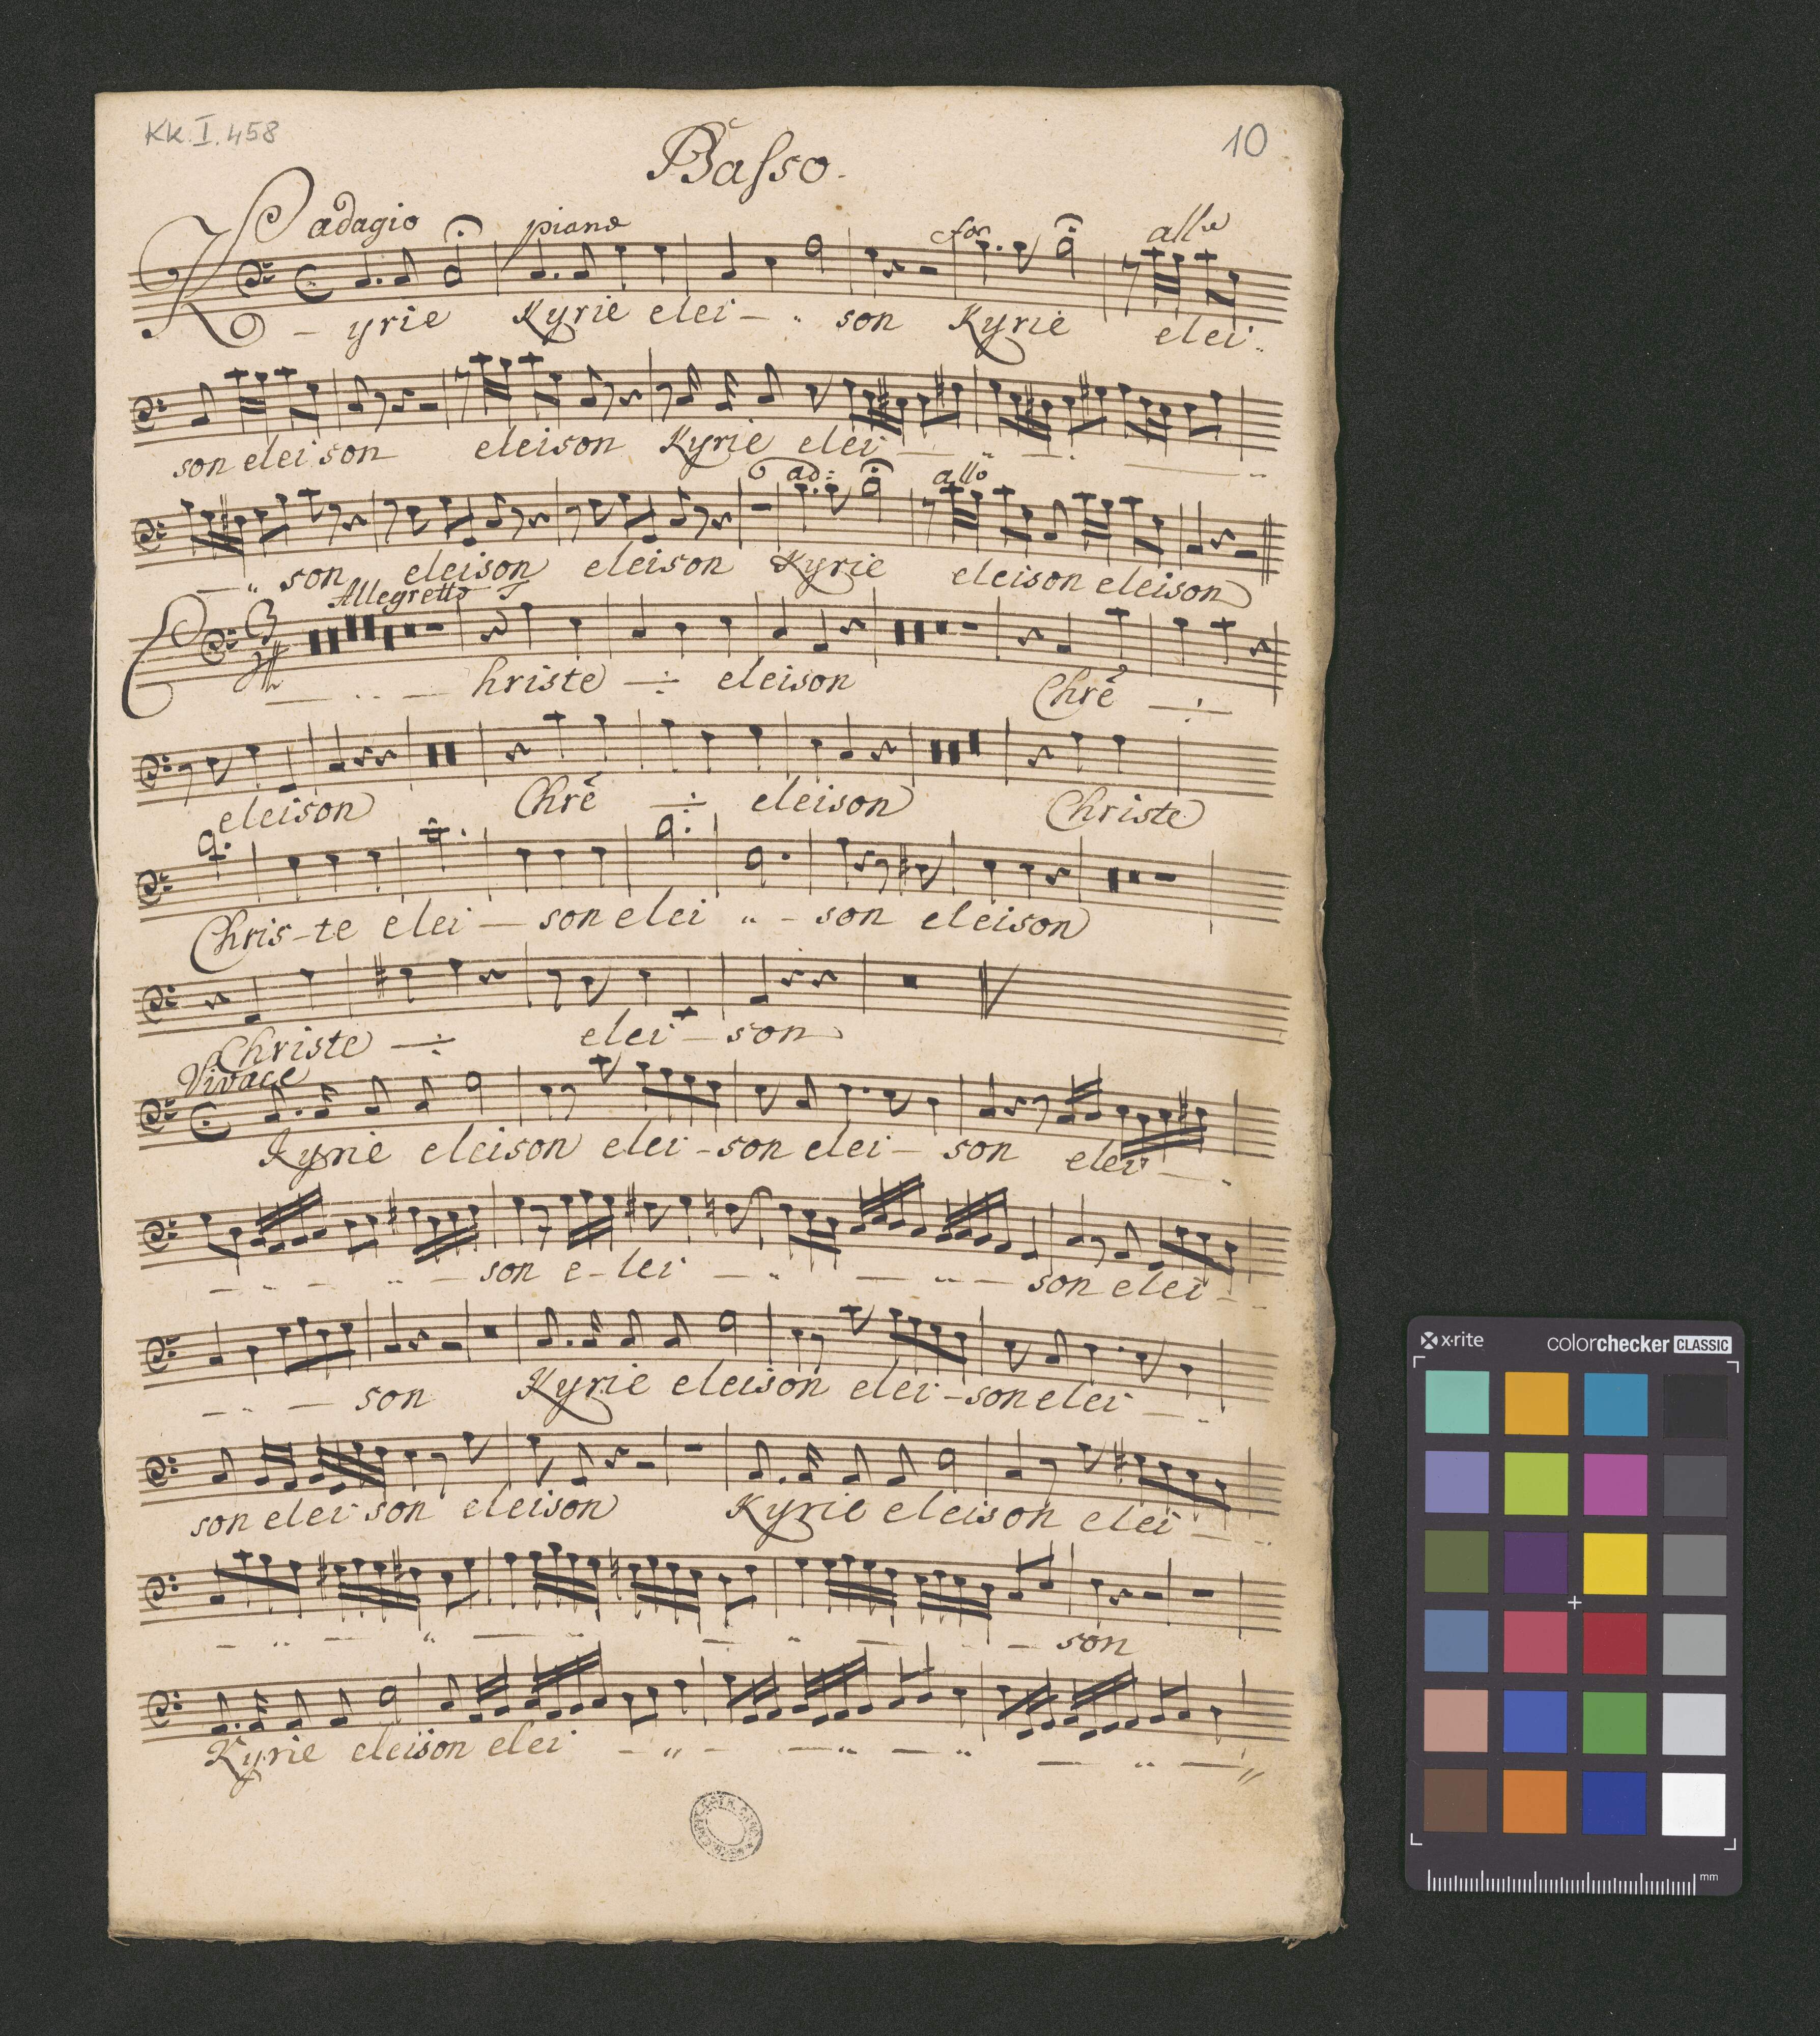 KK.I.458
10
Basso.
adagio piano for all⁰
Kyrie Kyrie elei - son Kyrie elei
son eleison eleison Kyrie elei
ad: all⁰
son eleison eleison Kyrie eleison eleison
Allegretto
Christe ÷ eleison Chrē ÷
eleison Chrē ÷ eleison Christe
Chris-te elei - son elei - son eleison
Christe ÷ elei - son
Vivace
Kyrie eleison elei - son elei - son elei
son e-lei son elei
son Kyrie eleison elei - son elei
son elei son eleison Kyrie eleison elei
son
Kyrie eleison elei
x·rite colorchecker CLASSIC
mm